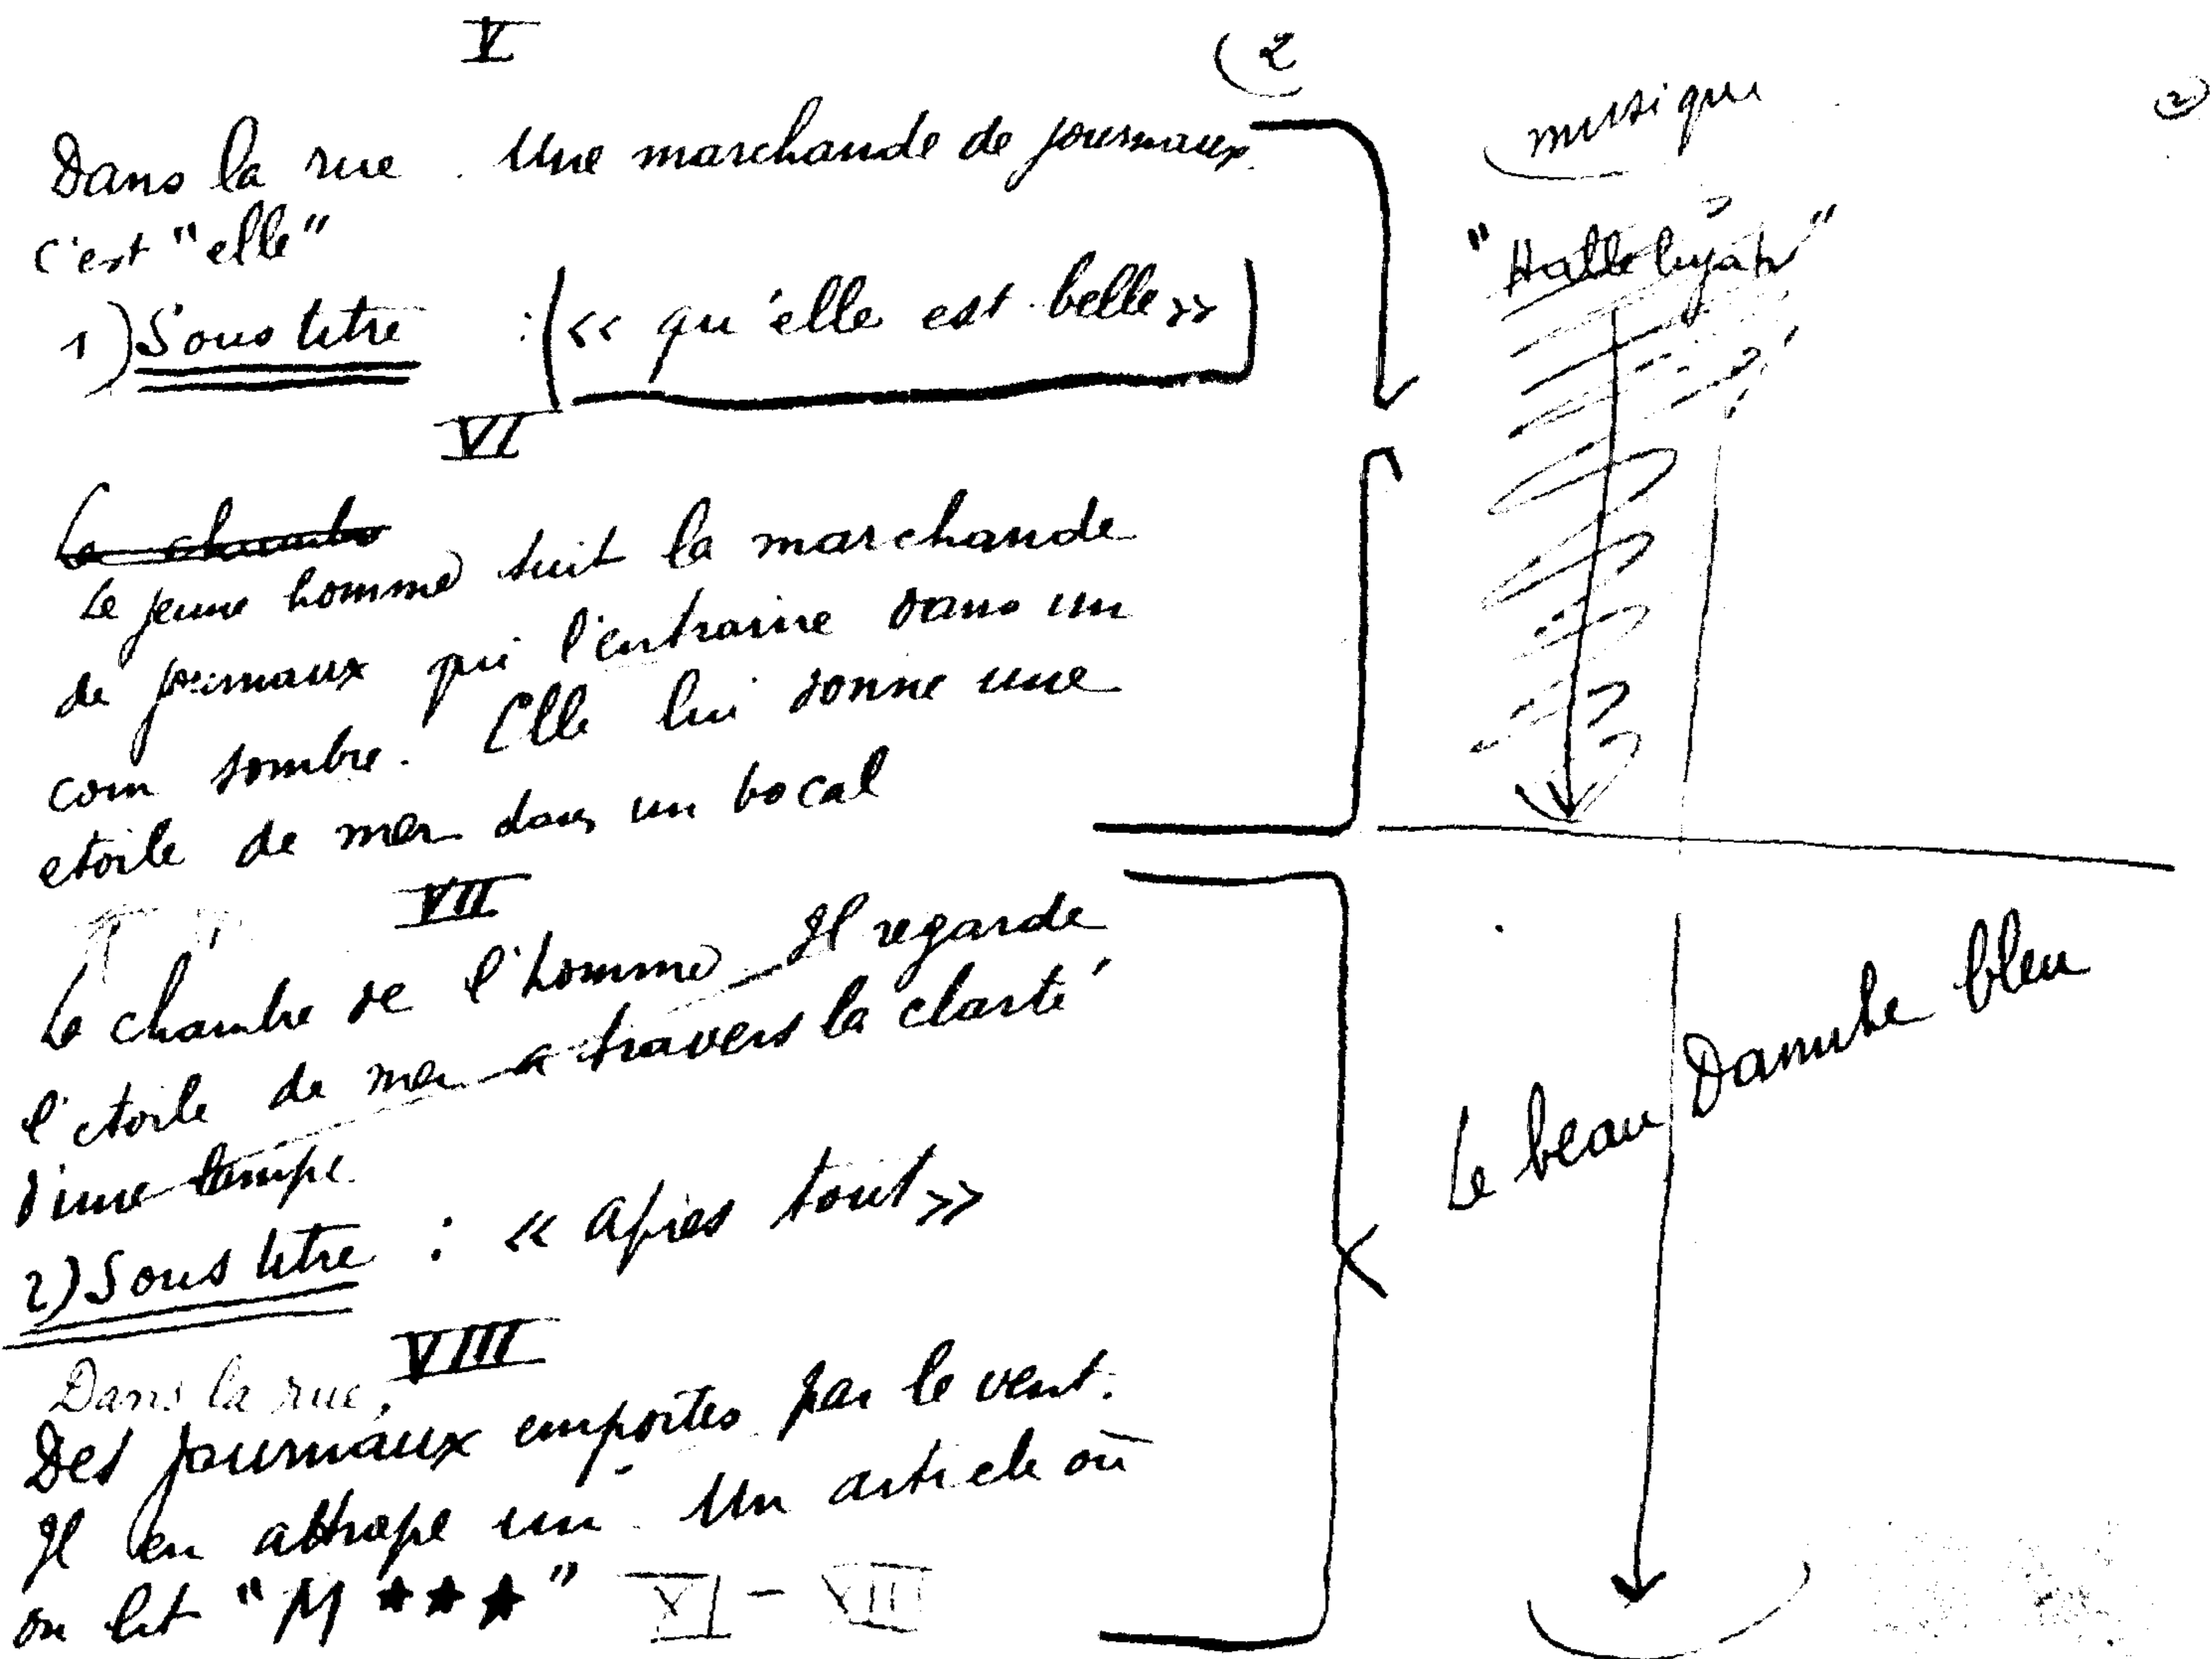 V
2
Dans la rue. Une marchande de journaux.
C'est "elle"
1) Sous titre : « qu'elle est belle »
VI
La chambre
Le jeune homme suit la marchande
de journaux qui l'entraine dans un
coin sombre. Elle lui donne une
etoile de mer dans un bocal
VII
La chambre de l'homme. Il regarde
l'etoile de mer a travers la clarté
d'une lampe
2) Sous titre : « après tout »
VIII
Dans la rue,
Des journaux emportes par le vent.
Il en attrape un. Un article où
on lit "M ★★★" XI - XIII
musique
2
"Hallelujah"
Le beau Danube bleu